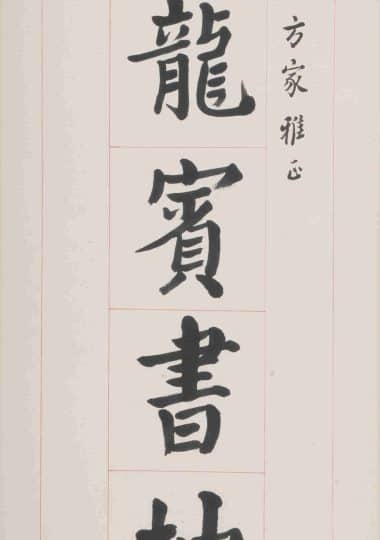 方家雅正
龍賓書